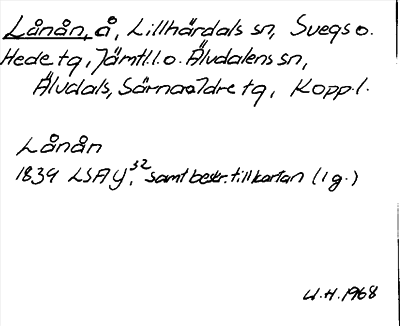 Lånån, å, Lillhärdals sn, Svegs o.
Hede tg, Jämtl.l. o. Älvdalens sn,
Älvdals, Särna o Idre tg, Kopp.l.
Lånån
1839 LSA Y, 32 samt beskr. till kartan (1 g.)
U.H. 1968